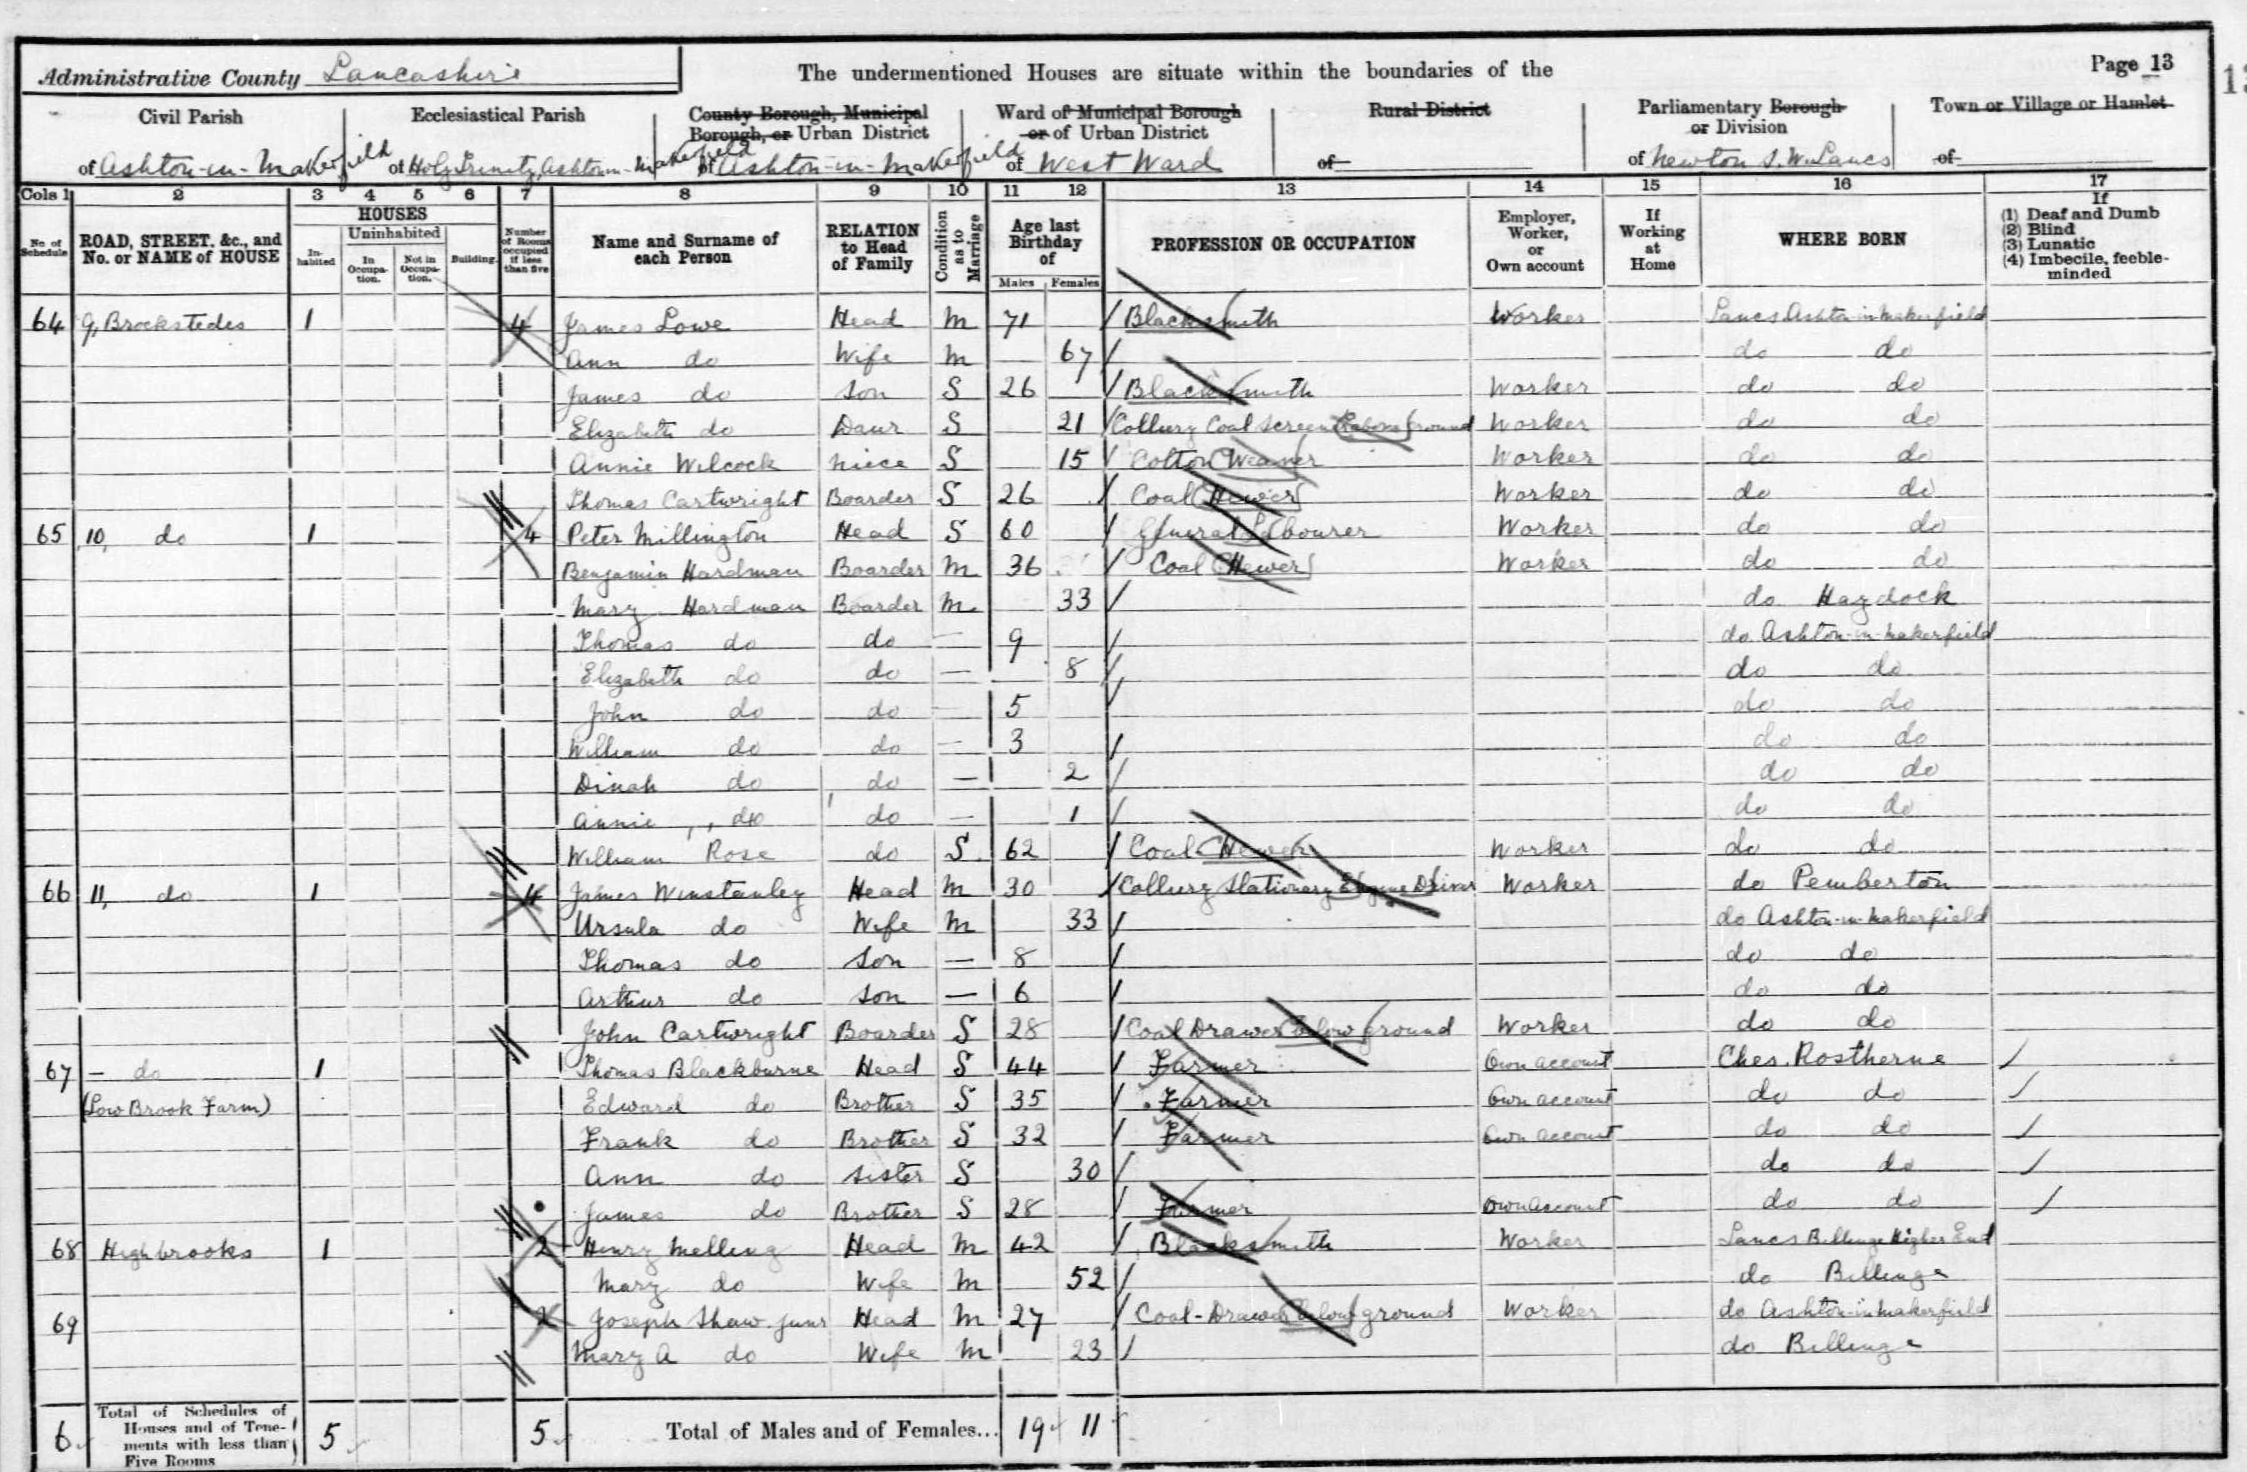 Administrative County Lancashire
The undermentioned Houses are situate within the boundaries of the
Page 13
Civil Parish
of Ashton-in-Makerfield
Ecclesiastical Parish
of Holy Trinity, Ashton-in-Makerfield
County Borough, Municipal
Borough, or Urban District
of Ashton-in-Makerfield
Ward of Municipal Borough
or of Urban District
of West Ward
Rural District
of
Parliamentary Borough
or Division
of Newton S.W. Lancs
Town or Village or Hamlet
of
Cols 1 2 3 4 5 6 7 8 9 10 11 12 13 14 15 16 17
No. of Schedule
ROAD, STREET, &c., and No. or NAME of HOUSE
HOUSES
Inhabited
Uninhabited
In Occupation.
Not in Occupation.
Building.
Number of Rooms occupied if less than five
Name and Surname of each Person
RELATION to Head of Family
Condition as to Marriage
Age last Birthday of
Males Females
PROFESSION OR OCCUPATION
Employer, Worker, or Own account
If Working at Home
WHERE BORN
If
(1) Deaf and Dumb
(2) Blind
(3) Lunatic
(4) Imbecile, feeble-minded
64 9, Brocksteds 1 4 James Lowe Head M 71 Blacksmith Worker Lancs Ashton-in-Makerfield
Ann do Wife M 67 do do
James do Son S 26 Blacksmith Worker do do
Elizabeth do Daur S 21 Colliery Coal Screener above ground Worker do do
Annie Wilcock Niece S 15 Cotton Weaver Worker do do
Thomas Cartwright Boarder S 26 Coal Hewer Worker do do
65 10, do 1 4 Peter Millington Head S 60 General Labourer Worker do do
Benjamin Hardman Boarder M 36 Coal Hewer Worker do do
Mary Hardman Boarder M 33 do Haydock
Thomas do do — 9 do Ashton-in-Makerfield
Elizabeth do do — 8 do do
John do do — 5 do do
William do do — 3 do do
Dinah do do — 2 do do
Annie do do — 1 do do
William Rose do S 62 Coal Hewer Worker do do
66 11, do 1 4 James Winstanley Head M 30 Colliery Stationary Engine Driver Worker do Pemberton
Ursula do Wife M 33 do Ashton-in-Makerfield
Thomas do Son — 8 do do
Arthur do Son — 6 do do
John Cartwright Boarder S 28 Coal Drawer below ground Worker do do
67 — do 1 Thomas Blackburne Head S 44 Farmer Own account Ches. Rostherne
(Low Brook Farm) Edward do Brother S 35 Farmer Own account do do
Frank do Brother S 32 Farmer Own account do do
Ann do Sister S 30 do do
James do Brother S 28 Farmer Own account do do
68 Highbrooks 1 2 Henry Melling Head M 42 Blacksmith Worker Lancs Billinge Higher End
Mary do Wife M 52 do Billinge
69 2 Joseph Shaw Junr Head M 27 Coal-Drawer below ground Worker do Ashton-in-Makerfield
Mary A do Wife M 23 do Billinge
6 Total of Schedules of
Houses and of Tene-
ments with less than
Five Rooms
5 5 Total of Males and of Females... 19 11